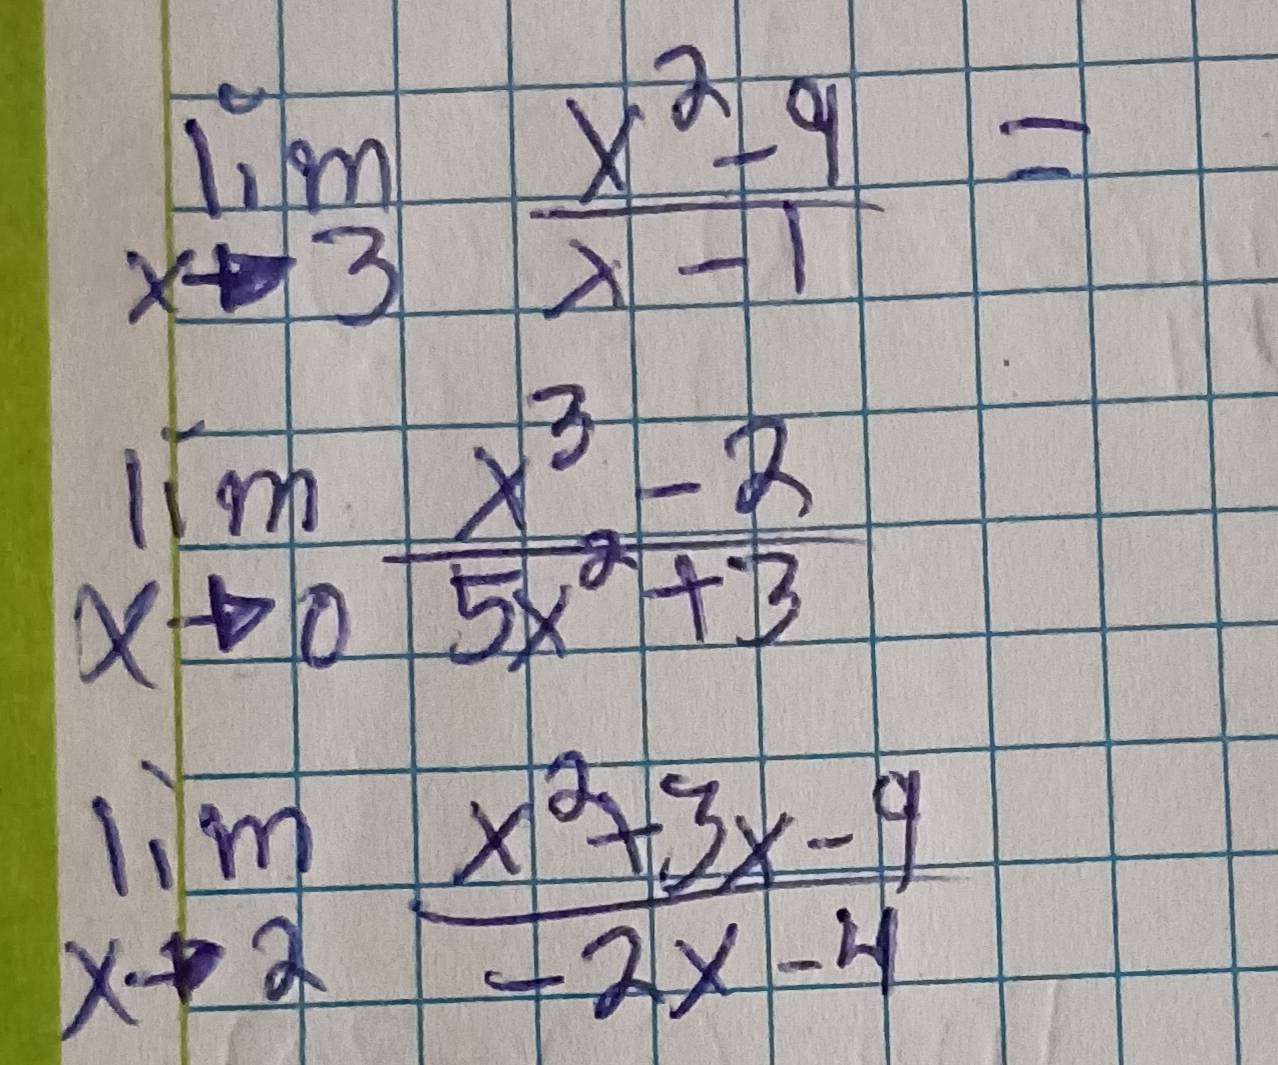 lim x→3 x² - 9 / x - 1 =
lim x→0 x³ - 2 / 5x² + 3
lim x→2 x² + 3x - 9 / - 2x - 4